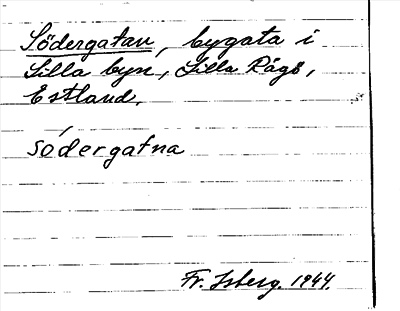 Södergatan, bygata i
Lilla byn, Lilla Rågö,
Estland.
södergatna
Fr. Isberg. 1944.